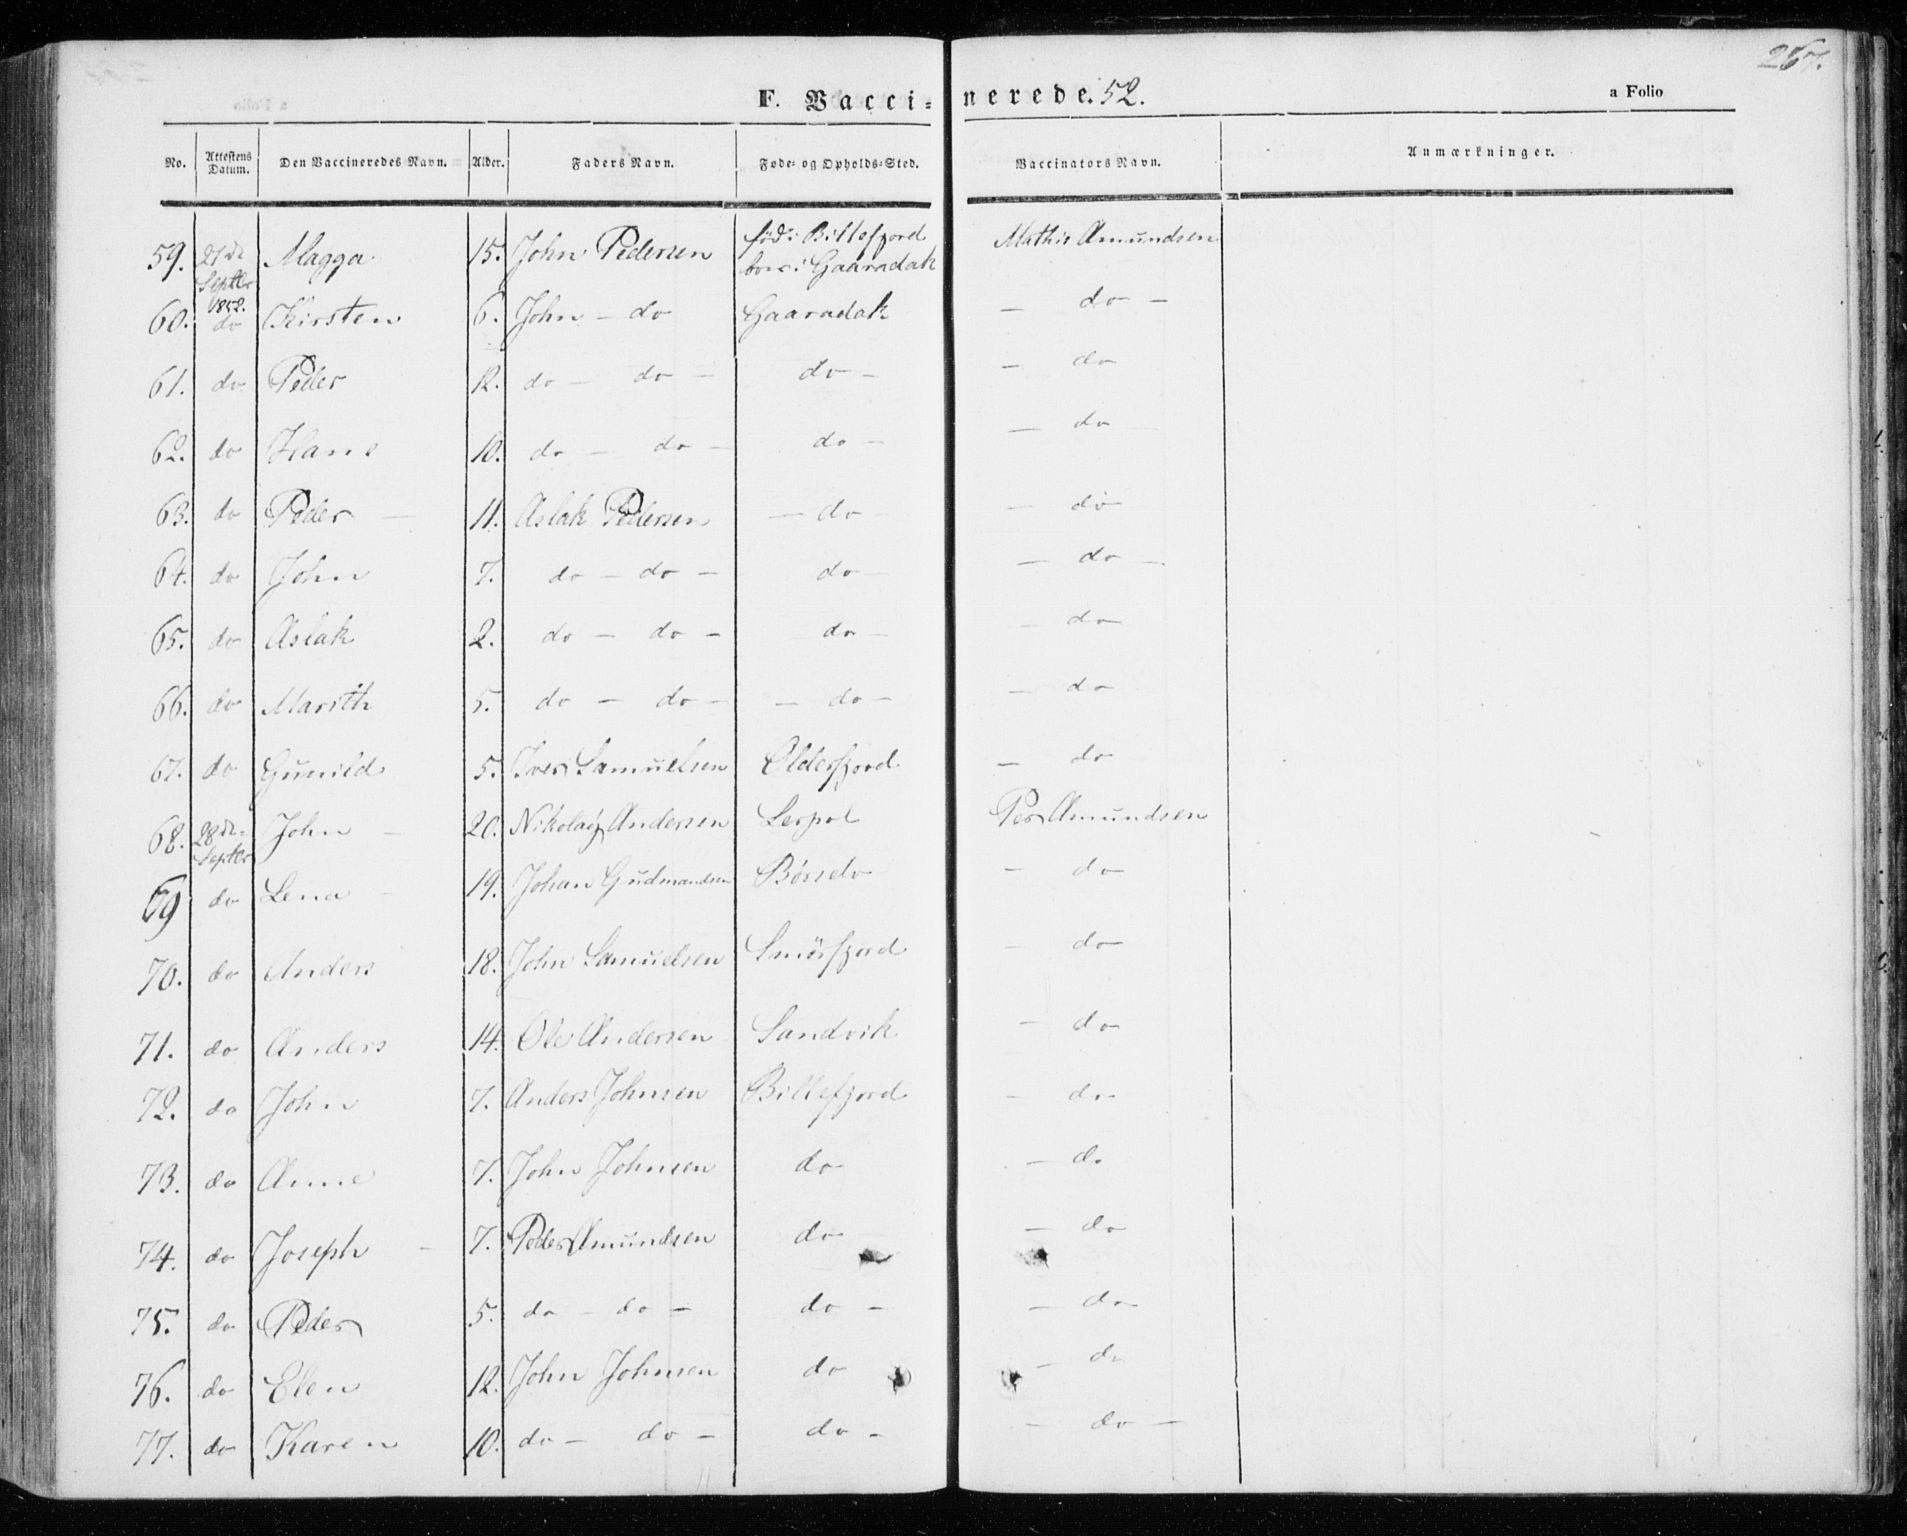 267.
F. Vaccinerede. 52.
a Folio
No. Attestens Datum. Den Vaccineredes Navn. Alder. Faders Navn. Føde- og Opholds-Sted. Vaccinators Navn. Anmærkninger.
59. 27de Septbr 1852. Magga 15. John Pedersen født i Billefjord boer i Gaaradak Mathis Amundsen
60. do Kirsten 6. John – do Gaaradak – do –
61. do Peder 12. do – do – do – – do
62. do Hans 10. do – do – do – – do –
63. do Peder – 11. Aslak Pedersen – do – – do
64. do John 7. do – do – do – – do –
65. do Aslak 2. do – do – – do – – do
66. do Marith 5. do – do – – do – – do
67. do Gunild 5. Iver Samuelsen Olderfjord – do
68. 28de Septbr John – 20. Nikolaij Andersen Lerpol Per Amundsen
69 do Lena – 19. Johan Gudmandsen Børselv – do
70. do Anders 18. John Samuelsen Smörfjord – do
71. do Anders 14. Ole Andersen Sandvik – do
72. do John 7. Anders Johnsen Billefjord – do
73. do Anne 7. John Johnsen do – do
74. do Joseph – 7. Peder Amundsen do – do
75. do Peder 5. do – do – do – – do
76. do Elen 12. John Johnsen do – do
77. do Karen 10. do – do – do – – do –